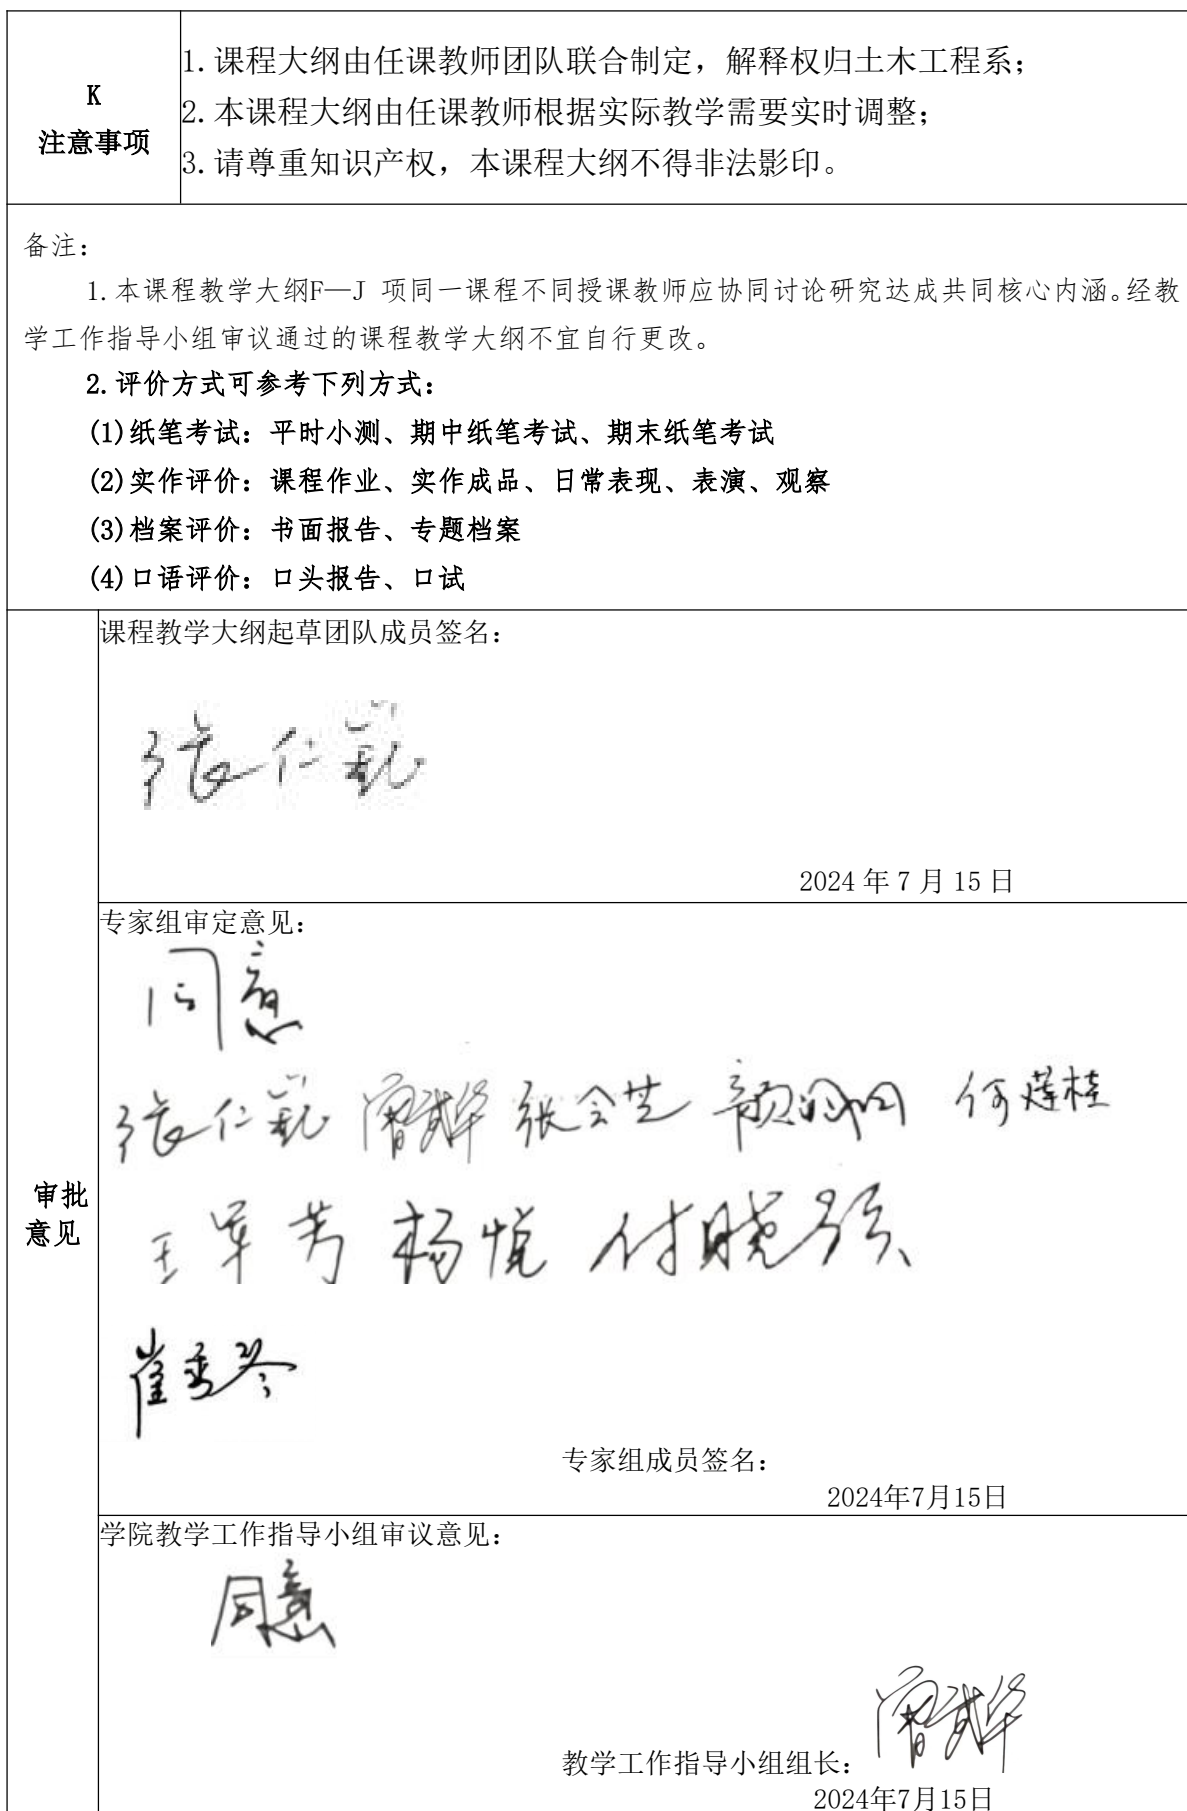 K
注意事项
1.课程大纲由任课教师团队联合制定，解释权归土木工程系；
2.本课程大纲由任课教师根据实际教学需要实时调整；
3.请尊重知识产权，本课程大纲不得非法影印。
备注：
1.本课程教学大纲F—J 项同一课程不同授课教师应协同讨论研究达成共同核心内涵。经教
学工作指导小组审议通过的课程教学大纲不宜自行更改。
2.评价方式可参考下列方式：
(1)纸笔考试：平时小测、期中纸笔考试、期末纸笔考试
(2)实作评价：课程作业、实作成品、日常表现、表演、观察
(3)档案评价：书面报告、专题档案
(4)口语评价：口头报告、口试
审批
意见
课程教学大纲起草团队成员签名：
张仁
2024 年 7 月 15 日
专家组审定意见：
同意
张仁 曾武华 张会芝 何莲桂
王军芳 杨悦 付晓强
崔秀琴
专家组成员签名：
2024年7月15日
学院教学工作指导小组审议意见：
同意
曾武华
教学工作指导小组组长：
2024年7月15日